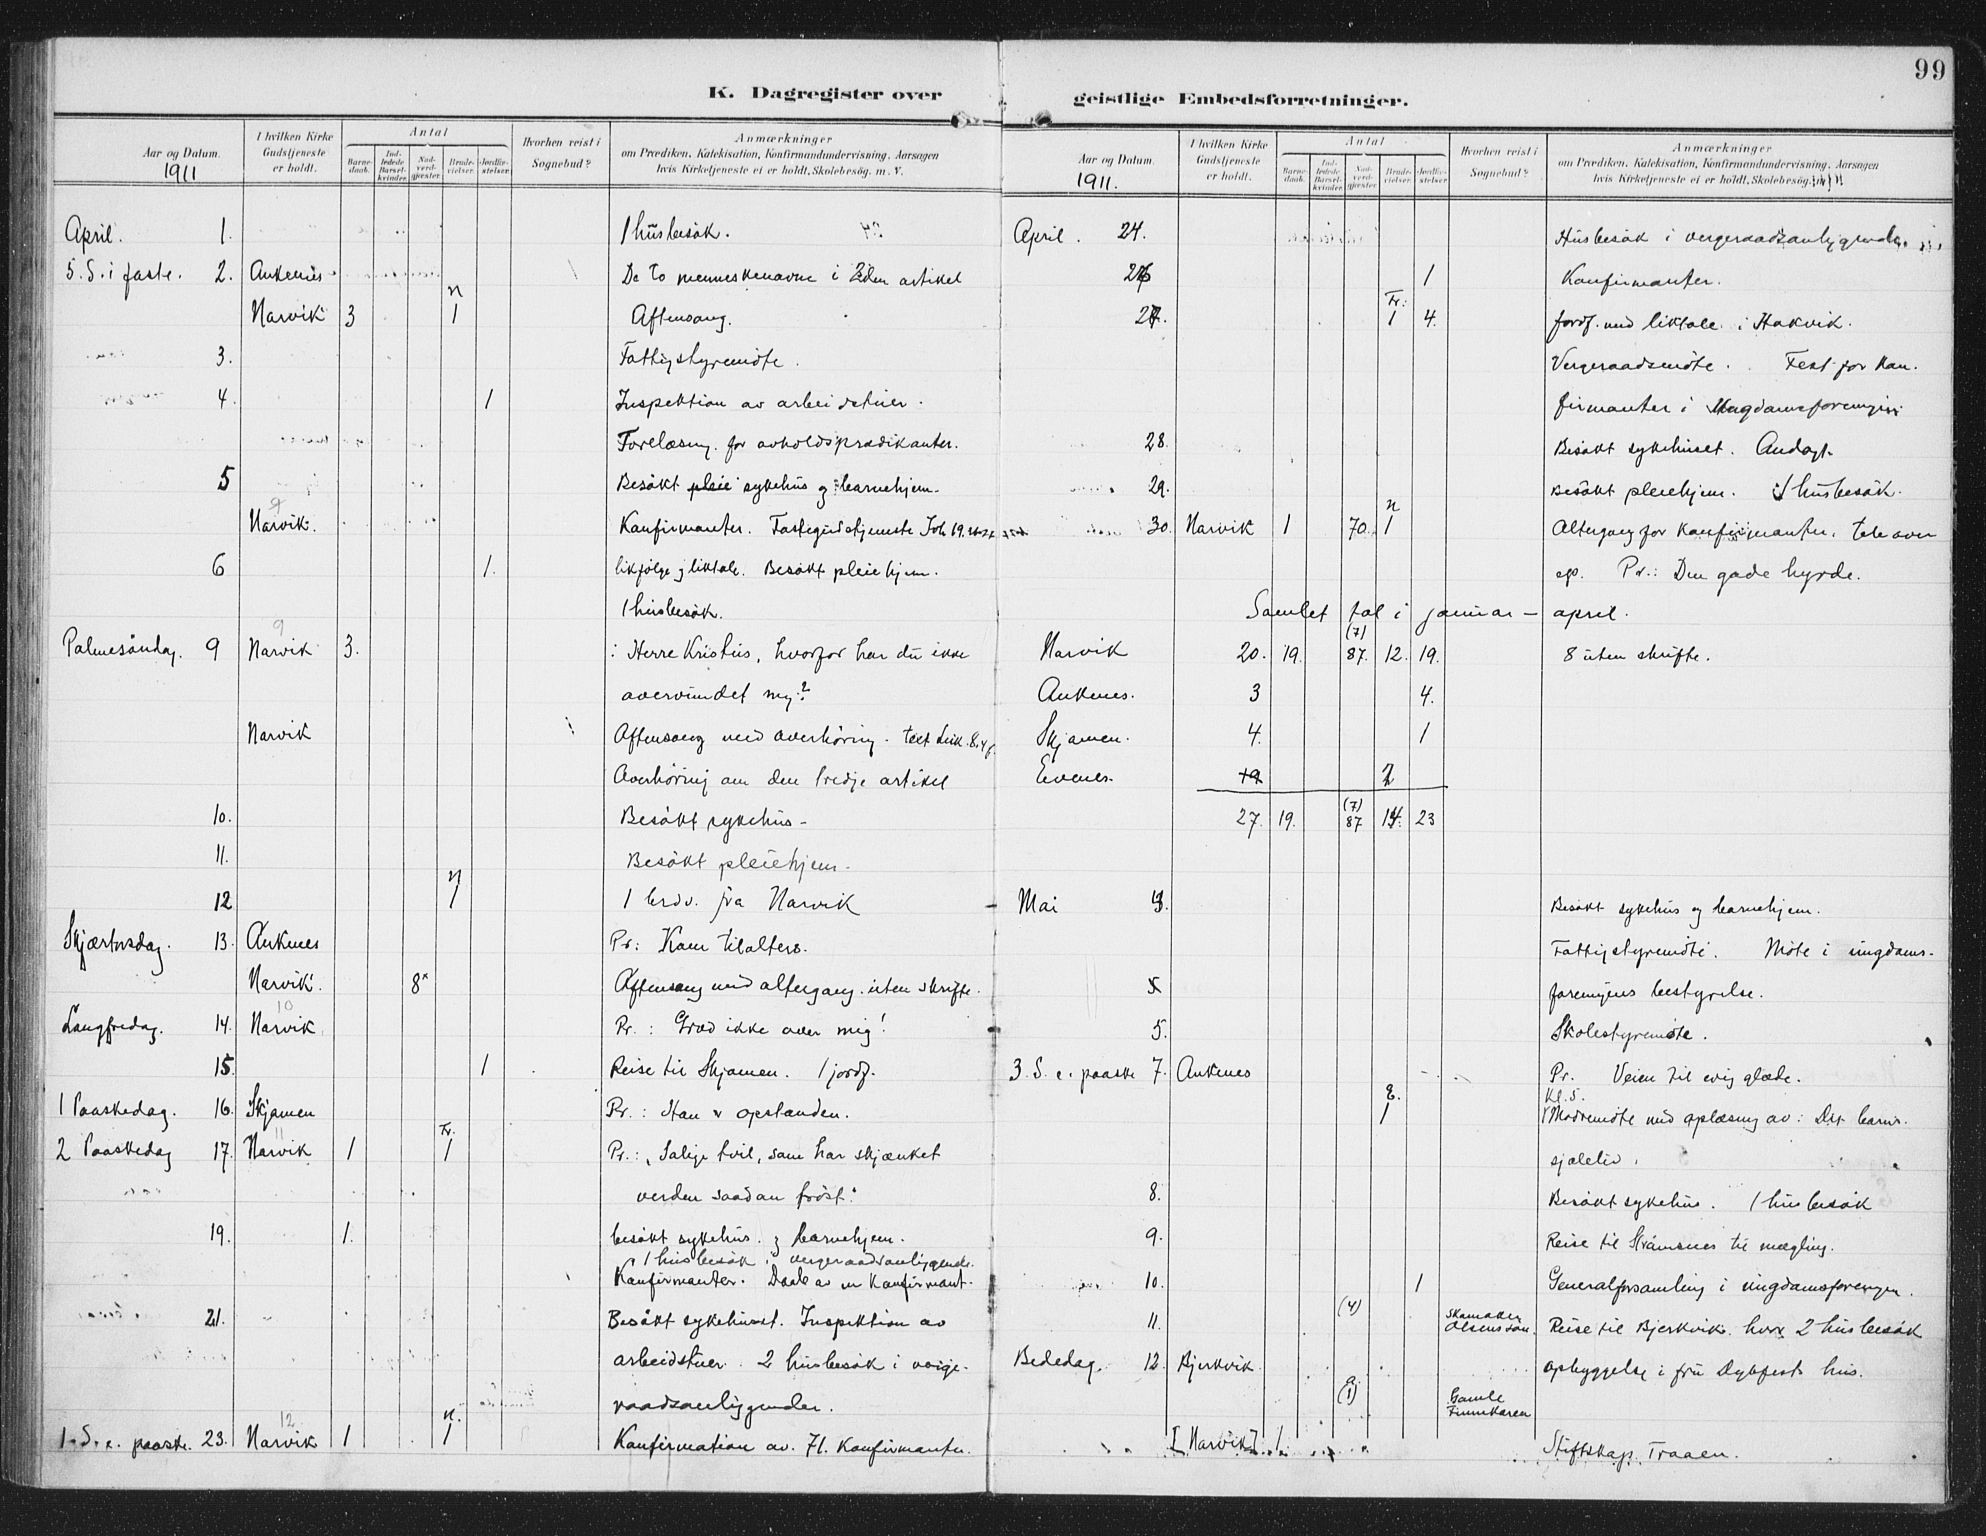 99
K. Dagregister over
Aar og Datum. 1911
I hvilken Kirke Gudstjeneste er holdt.
Antal
Barne-daab. Ind-ledede Barsel-kvinder. Nad-verd-gjester. Brude-vielser. Jordfæ-stelser.
Hvorhen reist i Sognebud?
Anmærkninger om Prædiken, Katekisation, Konfirmandundervisning, Aarsagen hvis Kirketjeneste ei er holdt, Skolebesøg m. v.
April. 1. 1 husbesök.
5. S. i faste. 2. Ankenes De to menneskenavne i 2den artikel
n
Narvik 3 1 Aftensang.
3. Fattigstyremöte.
4. 1 Inspektion av arbeidstuer.
Forelæsning for avholdsprædikanter.
5 Besökt sykehus og barnehjem.
Narvik. Konfirmanter. Fastegudstjeneste Joh 19.
6 1. likfölge og liktale. Besökt pleiehjem.
1 husbesök.
9
Palmesöndag. 9 Narvik 3. : Herre Kristus, hvorfor har du ikke
overvundet mig?
Narvik Aftensang med overhöring. text Luk. 8.4 f.
Overhöring om den tredje artikel
10. Besökt sykehus -
11. Besökt pleiehjem.
n
12 1 1 brdv. fra Narvik
Skjærtorsdag. 13. Ankenes Pr: Kom til alters.
Narvik. 8x Aftensang med altergang. uten skrifte.
10
Langfredag. 14. Narvik Pr. : Græd ikke over mig!
15. 1 Reise til Skjomen. 1 jordf.
1 Paaskedag. 16. Skjomen Pr. : Han er opstanden.
11 Fr.
2 Paaskedag 17. Narvik 1 1 Pr.: Salige tvil, som har skjænket
verden saadan tröst.
19. 1. besökt sykehus. og barnehjem.
1 husbesök i vergeraadsanliggende.
Konfirmanter. Daab av en konfirmant.
21. Besökt sykehuset. Inspektion av
arbeidstuer. 2 husbesök i verge-
raadsanliggender.
12 n.
1. S. e. paaske. 23. Narvik 1 1 Konfirmation av 71 konfirmanter.
geistlige Embedsforretninger.
Aar og Datum. 1911.
I hvilken Kirke Gudstjeneste er holdt.
Antal
Barne-daab. Ind-ledede Barsel-kvinder. Nad-verd-gjester. Brude-vielser. Jordfæ-stelser.
Hvorhen reist i Sognebud?
Anmærkninger om Prædiken, Katekisation, Konfirmandundervisning, Aarsagen hvis Kirketjeneste ei er holdt, Skolebesøg m. v.
April. 24. Husbesök i vergeraadsanliggender.
26 1 Konfirmanter.
Fr:
27. 1 4. Jordf. med liktale i Hakvik.
Vergeraadsmöte. Fest for kon.
firmanter i Ungdomsforeningen
28. Besökt sykehuset. Andagt.
29. Besökt pleiehjem. 1 husbesök.
n
30. Narvik 1 70. 1 Altergang for konfirmanter. tale over
ep. Pr.: Den gode hyrde.
Samlet tal i januar - april.
(7)
Narvik 20. 19. 87. 12. 19. 8 uten skrifte.
Ankenes. 3 4.
Skjomen. 4. 1
Evenes 2
(7)
27. 19. 87 14. 23
Mai 3. Besökt sykehus og barnehjem.
Fattigstyremöte. Möte i ungdoms-
foreningens bestyrelse.
5. Skolestyremöte.
3. S. e. paaske 7. Ankenes Pr. Veien til evig glæde.
E. Kl. 5.
1 Mödremöte med oplæsning av: Det barns
sjæleliv.
8. Besökt sykehus. 1 husbesök
9. Reise til Strömsnes til mægling.
10. 1 Generalforsamling i ungdomsforeningen.
11. (4) Skomaker Olsens sön. Reise til Bjerkvik. hvor 2 husbesök
Bededag. 12. Bjerkvik. opbyggelse i fru Dybfests hus.
(1) Gamle Finnkaren
[Narvik] 1 Stiftskap. Traaen.